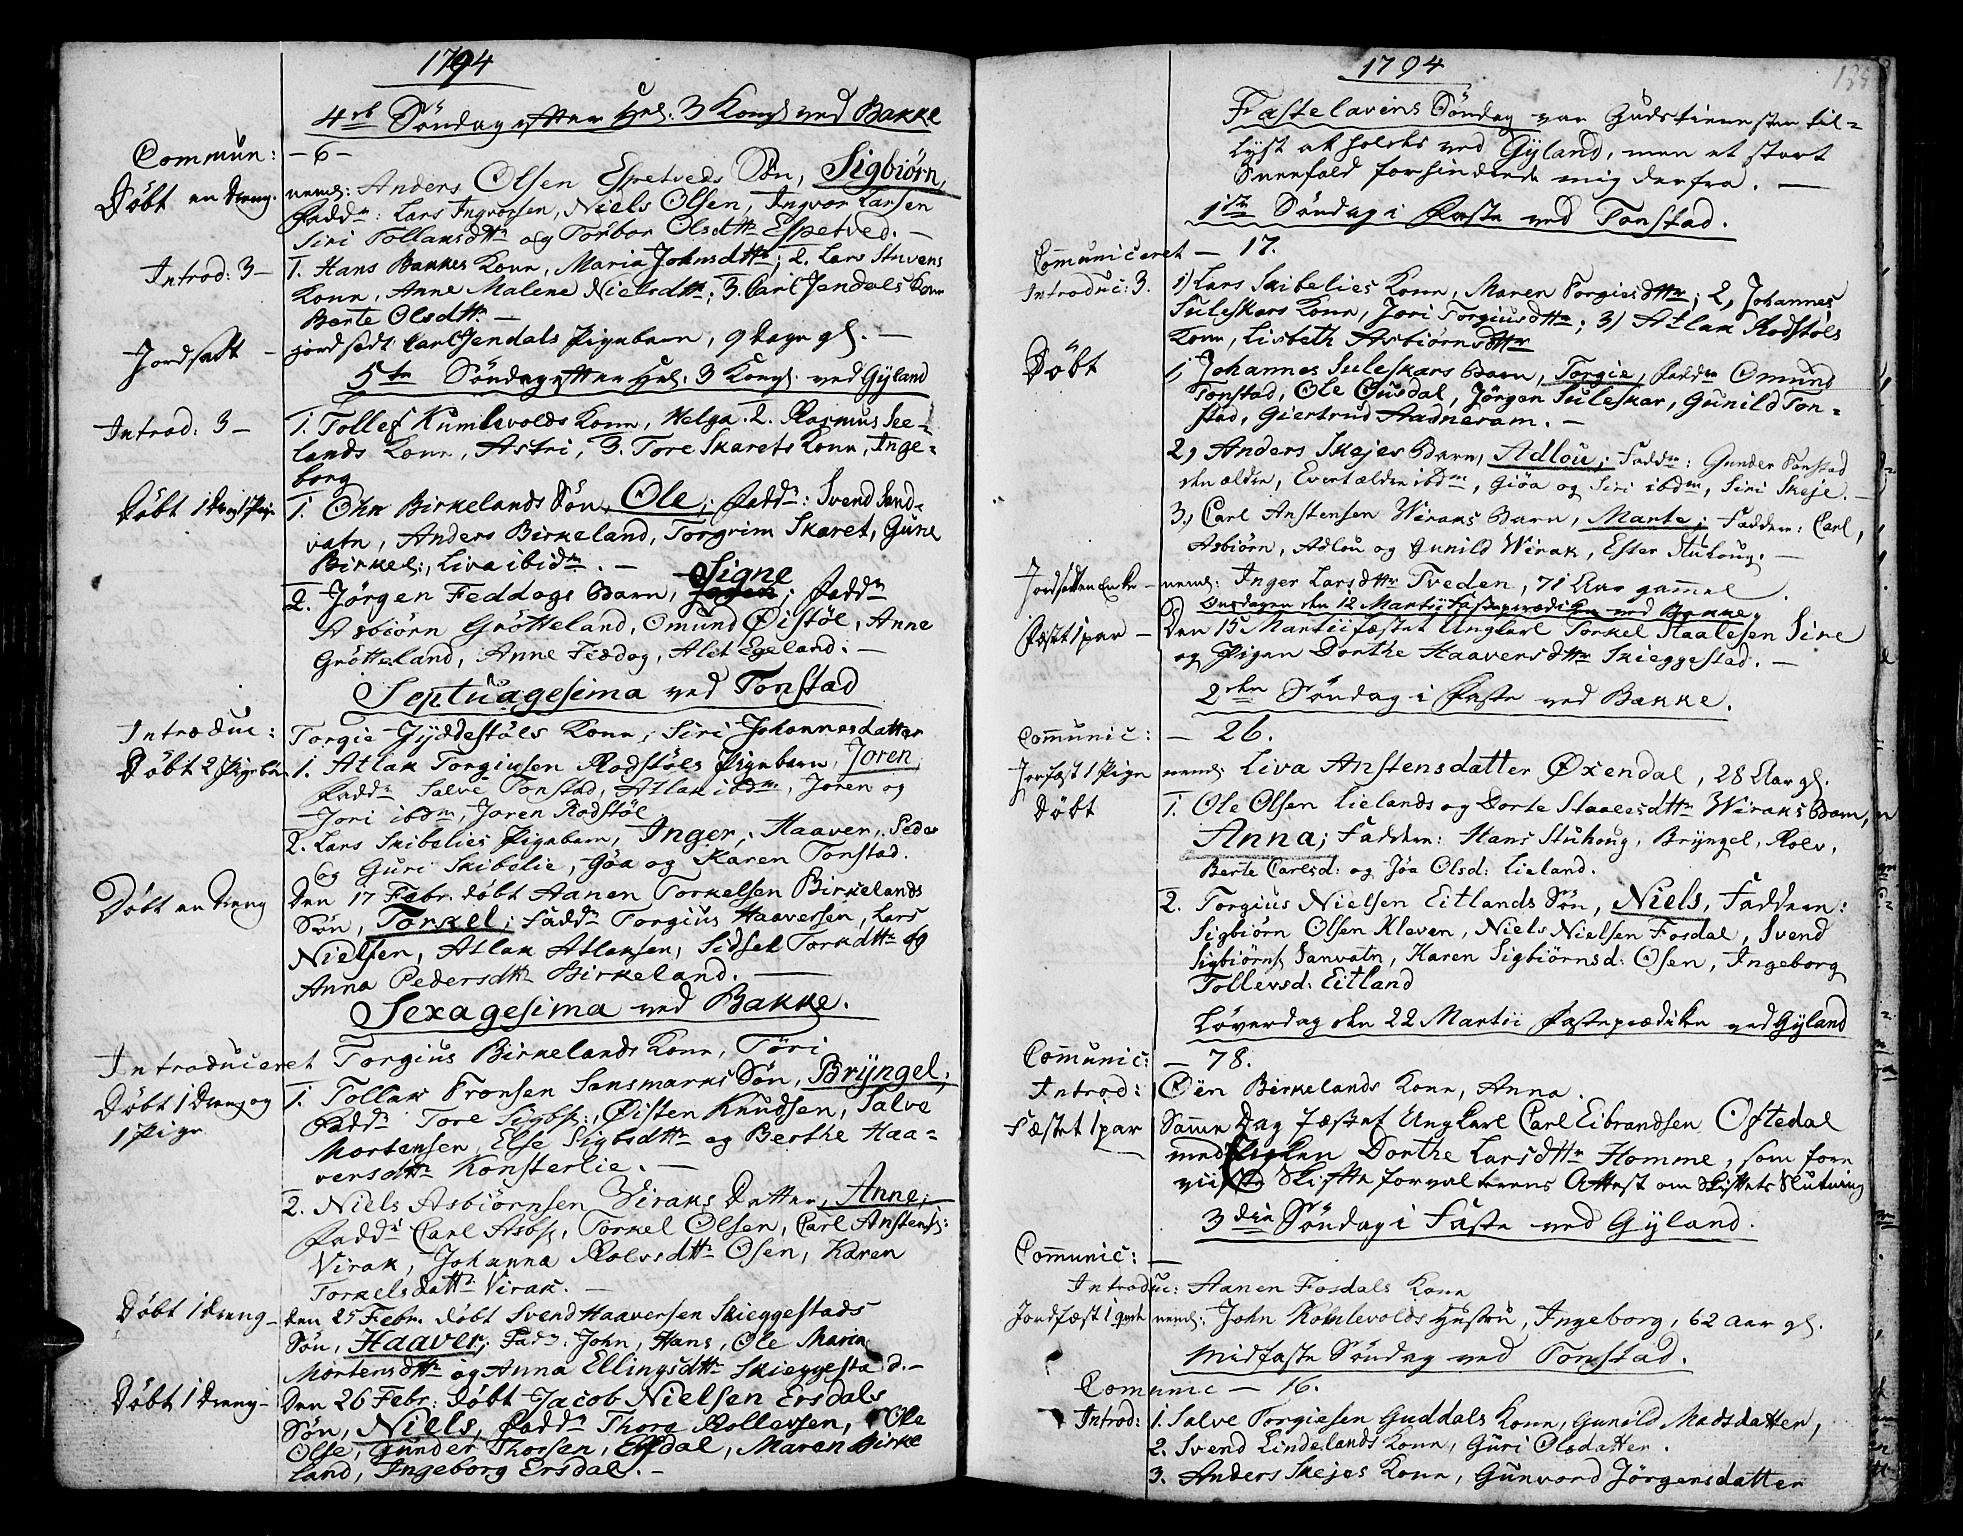 1794
4de Söndag efter Hel: 3 Kong. ved Bakke
Commun: -6-
Döbt en dreng. neml: Anders Olsen Espetveds Sön, Sigbiörn,
Fadd: Lars Ingvorsen, Niels Olsen, Ingvor Larsen
Siri Tollaksdttr og Torbor Olsdttr Espetved. -
Introd: 3- 1. Hans Bakkes Kone, Maria Johnsdttr; 2. Lars Stuvens
Kone, Anne Malene Nielsdttr; 3. Carl Jendals Kone
Berte Olsdttr. -
Jordsatt - jordsadt Carl Jendals Pigebarn, 9 dage gl. -
5te Söndag efter Hel: 3 Kong. ved Gyland
Introd: 3- 1. Tollef Kumlevolds Kone, Helga. 2. Rasmus See-
lands Kone, Astri, 3. Tore Skarets Kone, Inge-
borg
Döbt 1 dreng 1 Pige 1. Ohn Birkelands Sön, Ole; Fadd: Svend Sand-
vatn, Anders Birkeland, Torgrim Skaret, Gune
Birkel:, Liva ibidm. -
2. Jörgen Feddogs Barn, Signe; Fadd
Asbiörn Grötteland, Omund Öistöl, Anne
Grötteland, Anne Fiedog, Alet Egeland. -
Septuagesima ved Tonstad
Introduc: Torgie Jyddestöls Kone, Siri Johannesdatter
Döbt 2 Pigeb. 1. Atlak Torgiusen Rodstöls Pigebarn, Joren,
Fadd Salve Tonstad, Atlak ibdm, Joren og
Jori ibdm, Joren Rodstöl
2. Lars Skibelies Pigebarn, Inger, Haaver, Peder
og Guri Skibelie, Göa og Karen Tonstad.
Döbt en dreng Den 17 Febr. döbt Aanen Torkelsen Birkelands
Sön, Torkel; Fadd Torgius Haaversen, Lars
Nielsen, Atlak Atlaksen, Sidsel Torkdttr og
Anna Pedersdttr Birkeland. -
Sexagesima ved Bakke.
Introduceret Torgius Birkelands Kone, Töri
Döbt 1 dreng og 1. Tollak Fronsen Sansmarks Sön, Bryngel,
1 Pige Fadd Tore Sigbs:, Öisten Knudsen, Salve
Mortensen, Else Sigbsdttr og Berthe Haa-
versdttr Konsterlie. -
2. Niels Asbiörnsen Viraks Datter, Anne, -
Fadd Carl Asbs, Torkel Olsen, Carl Anstens:
Virak, Johanna Rolvsdttr Osen, Karen
Torkelsdattr Virak. -
Döbt 1 dreng - den 25 Febr. döbt Svend Haaversen Skieggestads
Sön, Haaver; Fad: John, Hans, Ole Maria
Mortensdttr og Anna Ellingsdttr Skieggestad. -
Döbt 1 dreng - Den 26 Febr: döbt Jacob Nielsen Ersdals
Sön, Niels, Fadd Thorg Rollevsen, Ole
Olse, Gunder Thorsen, Ersdal, Maren Birke
land, Ingeborg Ersdal. -
1794
Fastelavens Söndag var Gudstienesten til-
lyst at holdes ved Gyland, men et stort
Sneefald forhindrede mig derfra. -
1ste Söndag i Faste ved Tonstad.
Communiceret - 17.
Introduc: 3. 1) Lars Skibelies Kone, Maren Torgiesdttr; 2, Johannes
Suleskars Kone, Jori Torgiusdttr; 3) Atlak Rodstöls
Kone, Lisbeth Asbiörnsdttr
Döbt 1, Johannes Suleskars Barn, Torgie, Fadd Omund
Tonstad, Ole Ousdal, Jörgen Suleskar, Gunild Ton-
stad, Giertrud Aadneram. -
2, Anders Skejes Barn, Adlou; Fadd: Gunder Tonstad
den ældre, Evert ældre ibdm, Giöa og Siri ibdm, Siri Skeje. -
3, Carl Anstensen Wiraks Barn, Marte; Faddere: Carl,
Asbiörn, Adlou og Gunild Wirak, Ester Stuhoug. -
Jordsatt en Enke - neml: Inger Larsdttr Tveden, 71 Aar gammel.
Onsdagen den 12 Martii Fasteprædiken ved Bakke,
Fæstt 1 par - Den 15 Martii fæstet Ungkarl Torkel Staalesen Sire
og Pigen Dorthe Haaversdttr Skieggestad. -
2den Söndag i Faste ved Bakke.
Communic: - 26.
Jorfæst 1 Pige neml. Liva Anstensdatter Öxendal, 28 Aar gl.
Döbt 1. Ole Olsen Lielands og Dorte Staalesdttr Wiraks Barn,
Anna; Faddere: Hans Stuhoug, Bryngel, Rolv,
Berte Carlsd: og Jöa Olsd: Lieland.
2. Torgius Nielsen Eitlands Sön, Niels, Faddere:
Sigbiörn Olsen Kleven, Niels Nielsen Fosdal, Svend
Sigbiörns Sanvatn, Karen Sigbiörnsd: Osen, Ingeborg
Tollevsd: Eitland
Löverdag den 22 Martii Fasteprædiken ved Gyland
Communic: - 78.
Introd: Oen Birkelands Kone, Anna.
Fæstet 1 par Samme Dag fæstet Ungkarl Carl Eibrandsen Oftedal
med Pigen Dorthe Larsdttr Homme, som fore
viiste Skifteforvalterens Attest om Skiftets Slutning
3die Söndag i Faste ved Gyland.
Communic: -
Introduc: Aanen Fosdals Kone
Jordfæst 1 qvde neml: John Kömlevolds Hustru, Ingeborg, 62 Aar gl.
Midfaste Söndag ved Tonstad.
Comunic - 16.
Introd: 1. Salve Torgiesen Guddals Kone, Gunild Madsdatter,
2. Svend Lindelands Kone, Guri Olsdatter.
3. Anders Skejes Kone, Gunvord Jörgensdatter